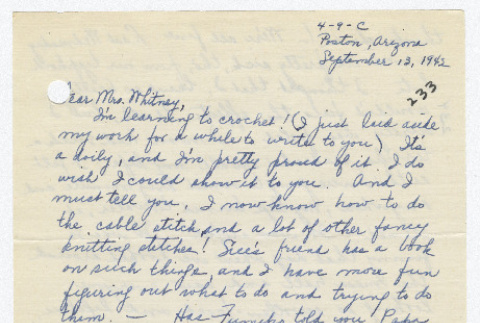 4-9-C
Poston, Arizona
September 13, 1942
233
ear Mrs. Whitney,
I'm learning to crochet! (I just laid aside
my work for a while to write to you) It's
a doily, and I'm pretty proud of it. I do
wish I could show it to you. And I
must tell you, I now know how to do
the cable stitch and a lot of other fancy
knitting stitches! Sue's friend has a book
on such things, and I have more fun
figuring out what to do and trying to do
them. — Has Fumiko told you Papa